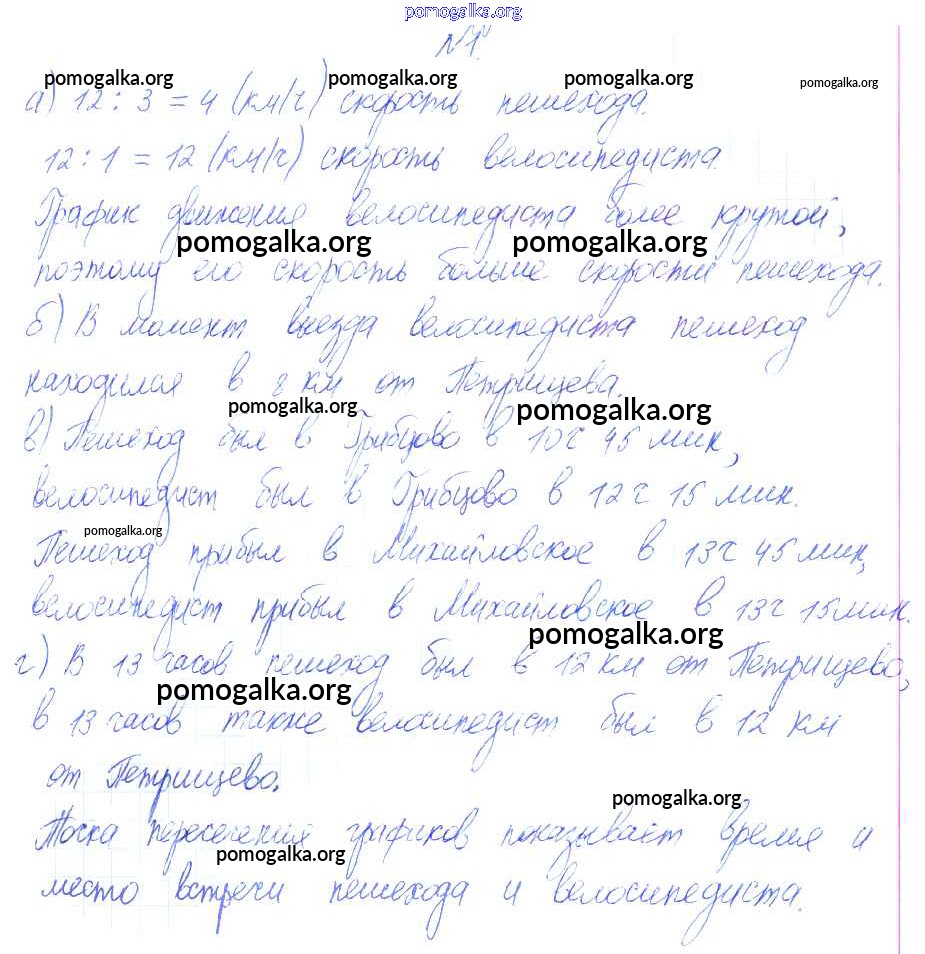 pomogalka.org
№1.
pomogalka.org pomogalka.org pomogalka.org pomogalka.org
а) 12 : 3 = 4 (км/ч) скорость пешехода.
12 : 1 = 12 (км/ч) скорость велосипедиста.
График движения велосипедиста более крутой,
pomogalka.org pomogalka.org
поэтому его скорость больше скорости пешехода.
б) В момент выезда велосипедиста пешеход
находился в 8 км от Петрищева.
pomogalka.org pomogalka.org
в) Пешеход был в Грибцово в 10 ч 45 мин,
велосипедист был в Грибцово в 12 ч 15 мин.
pomogalka.org
Пешеход прибыл в Михайловское в 13 ч 45 мин,
велосипедист прибыл в Михайловское в 13 ч 15 мин.
pomogalka.org
г) В 13 часов пешеход был в 12 км от Петрищево,
pomogalka.org
в 13 часов также велосипедист был в 12 км
от Петрищево.
pomogalka.org
Точка пересечения графиков показывает время и
pomogalka.org
место встречи пешехода и велосипедиста.